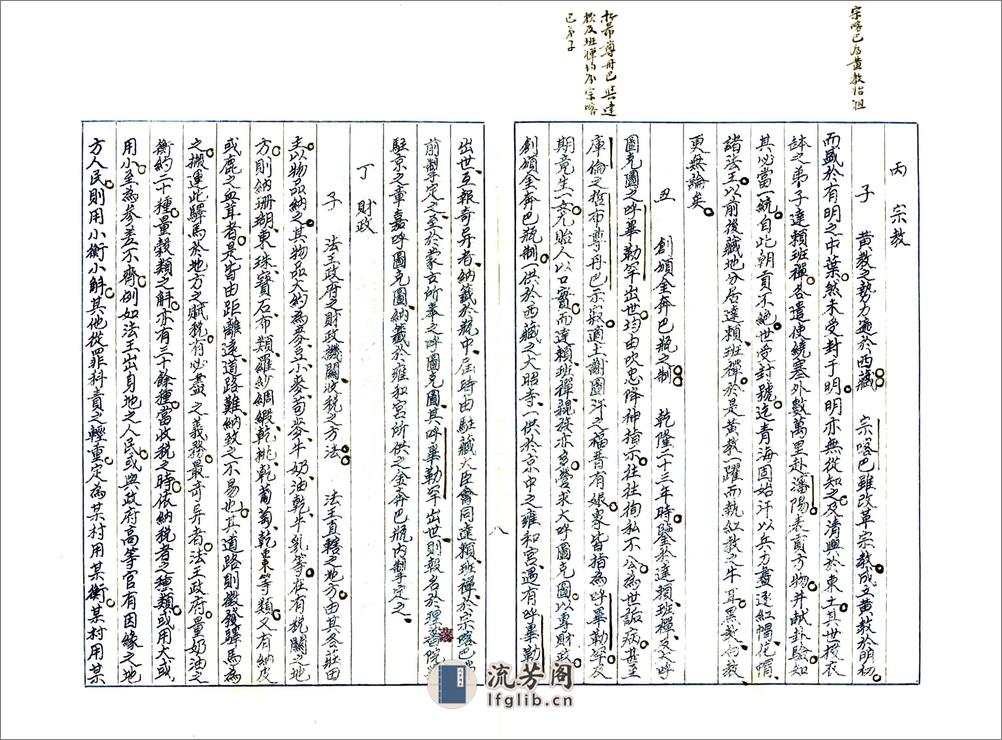 宗喀巴為黃教始祖
哲布尊丹巴與達
賴及班禪均為宗喀
巴弟子
丙　宗教
子　黃教之勢力遍於西藏　宗喀巴雖改革宗教成立黃教於明初
而盛於有明之中葉然未受封于明明亦無從知之及清興於東土其世授衣
缽之弟子達賴班禪各遣使繞塞外數萬里赴瀋陽表貢方物并獻卦驗知
其必當一統自此朝貢不絕世受封號迄青海固始汗以兵力盡逐紅帽花帽
諸法王以前後藏地分居達賴班禪於是黃教一躍而執紅教之牛耳黑教白教
更無論矣
丑　創頒金奔巴瓶之制　乾隆二十三年時鑒於達賴班禪及大呼
圖克圖之呼畢勒罕出世均由吹忠降神指示往往徇私不公為世詬病甚至
庫倫之哲布尊丹巴示寂適土謝圖汗之福晉有娠眾皆指為呼畢勒罕及
期竟生一女尤貽人以口實而達賴班禪親族亦多營求大呼圖克圖以專財政
創頒金奔巴瓶制一供於西藏之大昭寺一供於京中之雍和宮遇有呼畢勒
八
出世互報奇異者納籤於瓶中屆時由駐藏大臣會同達賴班禪於宗喀巴
前掣定之至於蒙古所奉之呼圖克圖其呼畢勒罕出世則報名於理藩院
駐京之章嘉呼圖克圖納籤於雍和宮所供之金奔巴瓶內掣定之
丁　財政
子　法王政府之財政機關收稅之方法　法王直轄之地方由其各莊田
主以物品納之其物品大約為麥豆小麥荀麥牛奶油乾牛乳等在有稅關之地
方則納珊瑚東珠寶石布類羅紗綢緞乾桃乾葡萄乾棗等類又有納皮
或鹿之血茸者是皆由距離遠道路難納致之不易也其道路則徵發驛馬為
之搬運此驛馬於地方之賦稅有必盡之義務最奇異者法王政府量奶油之
衡約二十種量穀類之斛亦有三十餘種當收稅之時依納稅者之種類或用大或
用小至為參差不齊例如法王出身地之人民或與政府高等官有因緣之地
方人民則用小衡小斛其他從罪科責之輕重定為某村用某衡某村用某
流芳阁
lfglib.cn